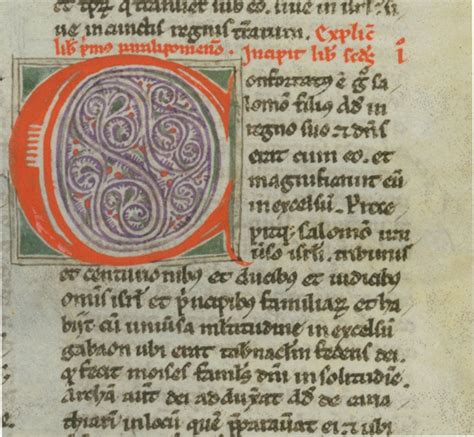 et tp̄ꝝ q̄ tranſierūt ſub eo. ſiue in iſrl ſi
ue in cunctis regnis t̄raꝝum. Explic̄
lib̄ pm̄us paralipomenō. Incipit lib̄ ſcd̄s I
Confortatus ē g̊ ſa
lomō filius dd̄ in
regno ſuo et dn̄s
erat cum eo. et
magnificauit eū
in excelſū. Precepitq;
ſalomō uni
uſo iſrl̄i. tribunis
et centurionibus et ducibus et iudicibus
omīs iſrl et p̄ncipibus familiaꝝ et ha
bijt cū uniuſa ml̄titudine in excelſū
gabaon ubi erat tab̄nacl̄m federis dei.
q̄ fecit moiſes famls̄ dm̄ in ſolitudīe.
Archā aut̄ dei adduxat̄ de caria
thiarī in locū quē p̄parauat̄ ei